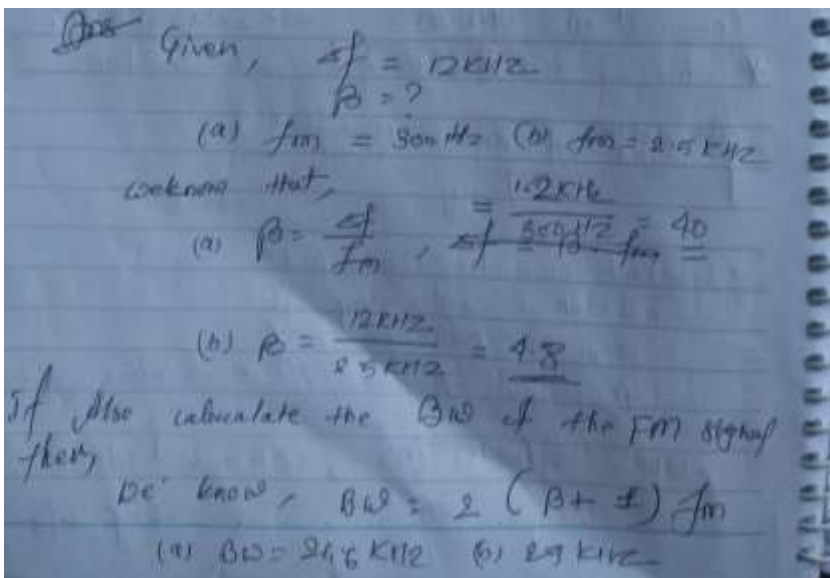 Ans Given, Δf = 12KHz
β = ?
(a) fm = 300 Hz (b) fm = 2.5 KHz
we know that,
(a) β = Δf/fm , = 12KHz/300HZ = 40
(b) β = 12KHZ/2.5KHZ = 4.8
If Also calculate the BW of the FM signal
then,
we know, BW = 2 (β + 1) fm
(a) BW = 24.6 KHz (b) 29 KHz